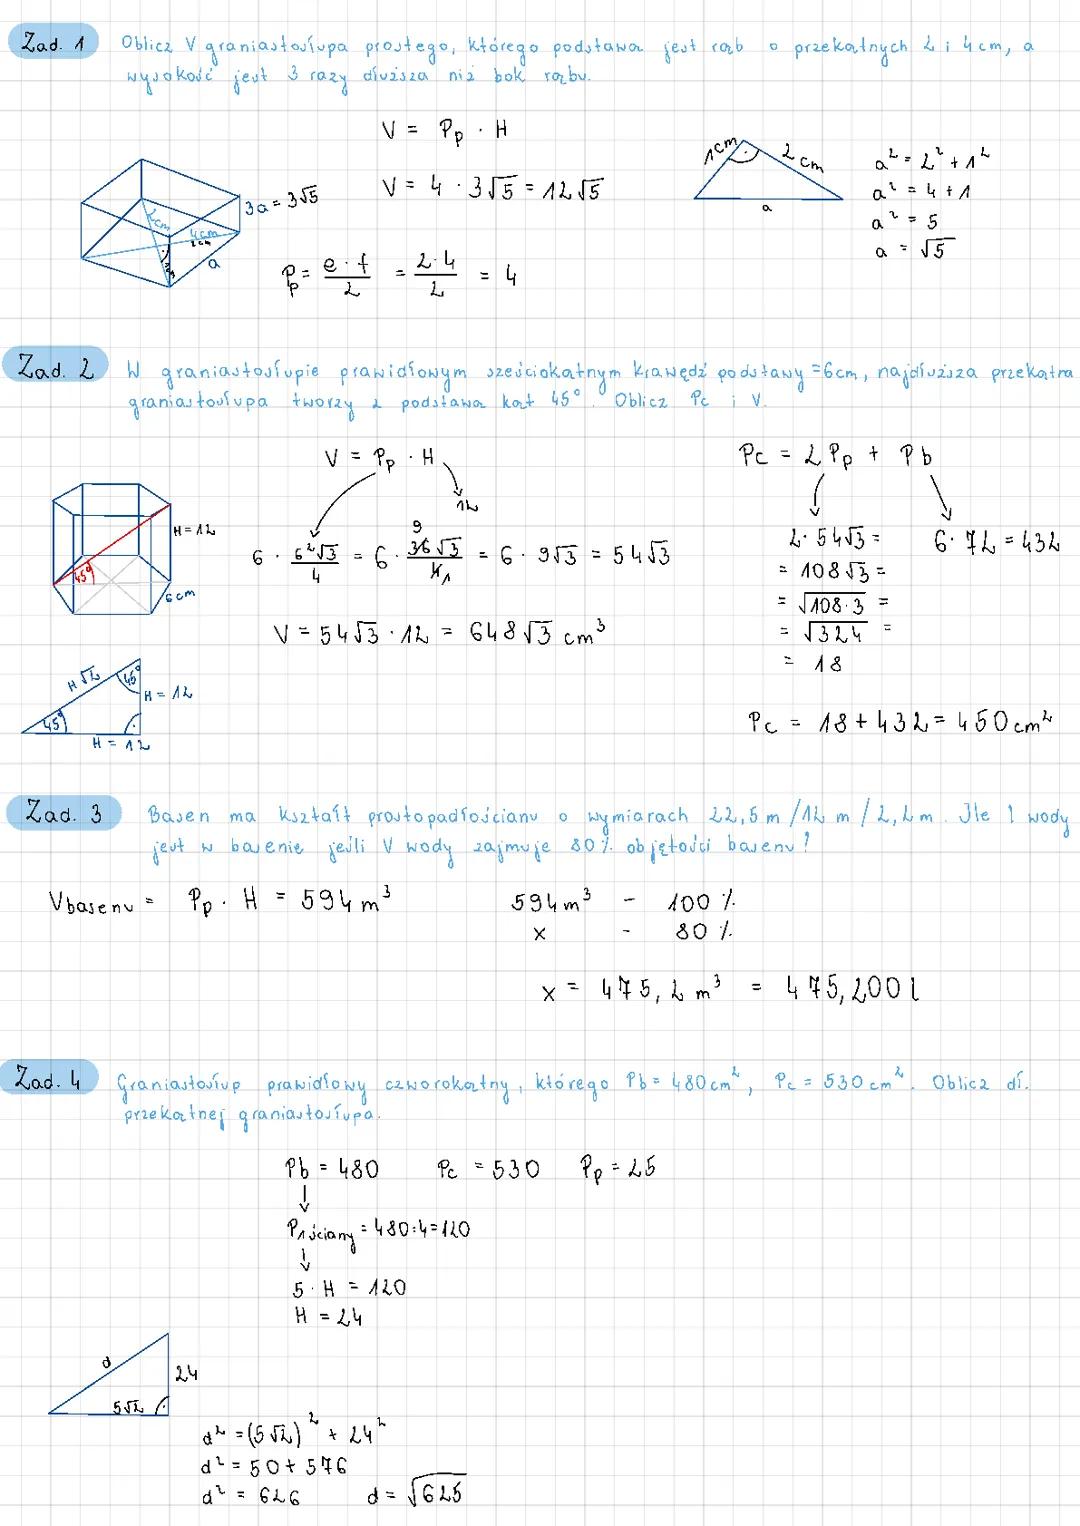 Zad. 1 Oblicz V graniastosłupa prostego, którego podstawą jest romb o przekątnych 2 i 4 cm, a
wysokość jest 3 razy dłuższa niż bok rombu.
V = Pp · H
V = 4 · 3√5 = 12√5
Pp = e·f/2 = 2·4/2 = 4
3a = 3√5
2cm
4cm
2cm
1cm
a
1cm
2 cm
a
a² = 2² + 1²
a² = 4 + 1
a² = 5
a = √5
Zad. 2 W graniastosłupie prawidłowym sześciokątnym krawędź podstawy = 6cm, najdłuższa przekątna
graniastosłupa tworzy z podstawą kąt 45°. Oblicz Pc i V.
V = Pp · H
12
6 · 6²√3/4 = 6 · 36√3/4 = 6 · 9√3 = 54√3
9
1
V = 54√3 · 12 = 648√3 cm³
H = 12
45°
6cm
H√2
45°
H = 12
45°
H = 12
Pc = 2Pp + Pb
2·54√3 =
= 108√3 =
= √108·3 =
= √324 =
= 18
6·72 = 432
Pc = 18 + 432 = 450 cm²
Zad. 3 Basen ma kształt prostopadłościanu o wymiarach 22,5 m / 12 m / 2,2 m. Ile l wody
jest w basenie jeśli V wody zajmuje 80% objętości basenu?
Vbasenu = Pp · H = 594 m³
594 m³ - 100 %
x - 80 %
x = 475,2 m³ = 475,200 l
Zad. 4 Graniastosłup prawidłowy czworokątny, którego Pb = 480 cm², Pc = 530 cm². Oblicz dł.
przekątnej graniastosłupa.
Pb = 480 Pc = 530 Pp = 25
P1 ściany = 480:4 = 120
5 · H = 120
H = 24
d
24
5√2
d² = (5√2)² + 24²
d² = 50 + 576
d² = 626 d = √625